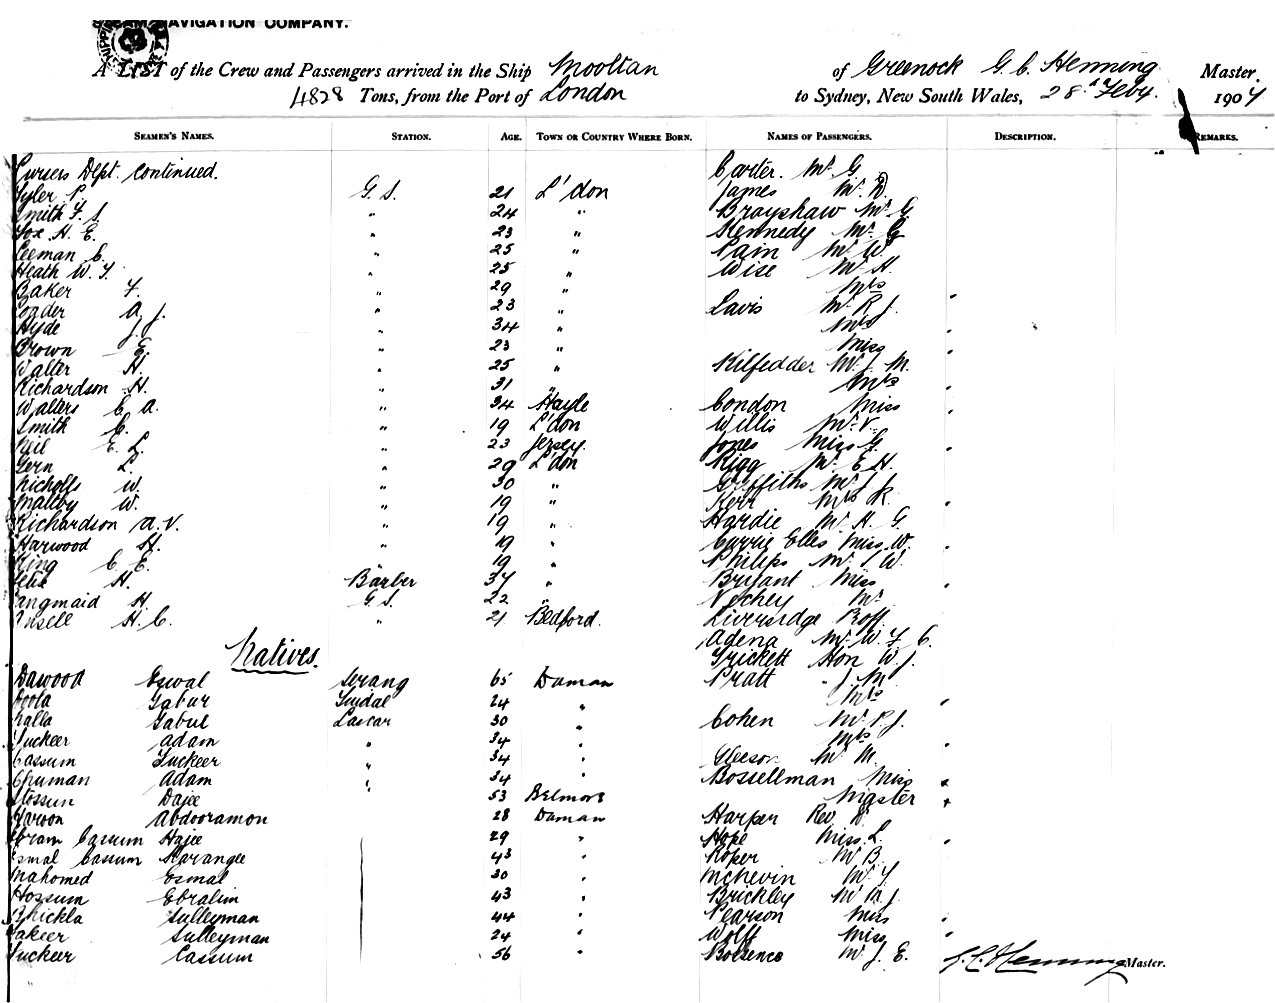 STEAM NAVIGATION COMPANY.
A LIST of the Crew and Passengers arrived in the Ship Mooltan of Greenock G. C. Henning Master.
4828 Tons, from the Port of London to Sydney, New South Wales, 28th Feby. 1904
SEAMEN'S NAMES. STATION. AGE. TOWN OR COUNTRY WHERE BORN. NAMES OF PASSENGERS. DESCRIPTION. REMARKS.
Pursers Dept. Continued. Carter Mr G.
Tyler G.S. 21 L'don James Mr
Smith F. S. " 24 " Brayshaw Mr G.
Fox H. E. " 23 " Kennedy Mr G
Leeman C. " 25 " Pain Mr W.
Heath W. F. " 25 " Wise Mr H.
Baker F. " 29 " Mrs
Loader A. J. " 23 " Lavis Mr R. J. "
Hyde J. " 34 " Mrs "
Brown E. " 23 " Miss "
Walter H. " 25 " Kilfedder Mr J. M.
Richardson H. " 31 " Mrs "
Walters C. A. " 34 Hayle Condon Miss "
Smith C. " 19 L'don Willis Mr V.
Neil E. L. " 23 Jersey. Jones Miss G. "
Gern L. " 29 L'don Rigg Mr E H.
Nicholls W. " 30 " Griffiths Mr
Maltby W. " 19 " Kerr Mrs R. "
Richardson A. V. " 19 " Hardie Mr H. G.
Harwood H. " 19 " Currie Elles Miss W. "
King C. E. " 19 " Philips Mr
H. Barber 37 " Bryant Miss "
Langmaid H. G.S. 22 " Mr
H. C. " 21 Bedford. Liversidge Proff.
Natives. Adena Mr W. F. C.
Trickett Hon W. J.
Dawood Eswal Serang 65 Daman Pratt " J. M.
Gabur Tindal 24 " Mrs "
Gabul Lascar 30 " Cohen Mr P. J.
Fuckeer Adam " 34 " Mrs "
Cassum Fuckeer " 34 " Gleeson Mr M.
Chuman Adam " 34 " Bossellman Miss "
Dajee 53 Belmore Master "
Haroon Abdooramon 28 Daman Harper Rev.
Ebram Cassum Hajee 29 " Hope Miss L. "
Esmal Cassum 43 " Roper Mr B.
Mahomed Esmal 30 " McNevin Mr
Hossum Ebrahim 43 " Brickley Mr M. J.
Bhickla Sulleyman 44 " Pearson Miss "
Fakeer Sulleyman 24 " Wolff Miss "
Fuckeer Cassum 56 " Mr J. E.
G. C. Henning Master.